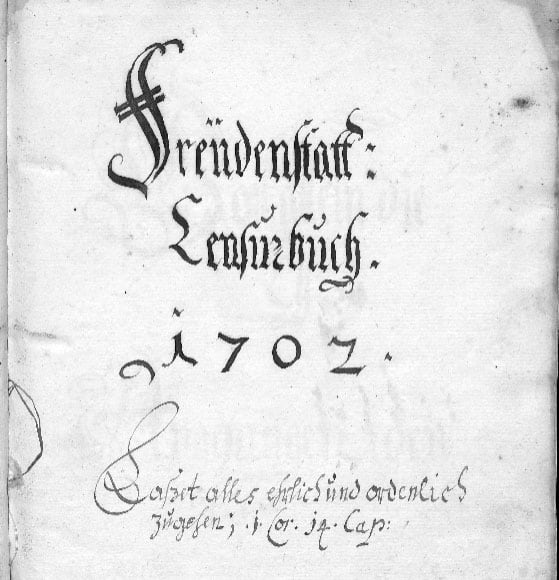 Freüdenstatt:
Censurbuch.
1702.
Laßet alles ehrlich und ordenlich
zugehen; .1. Cor. 14. Cap: